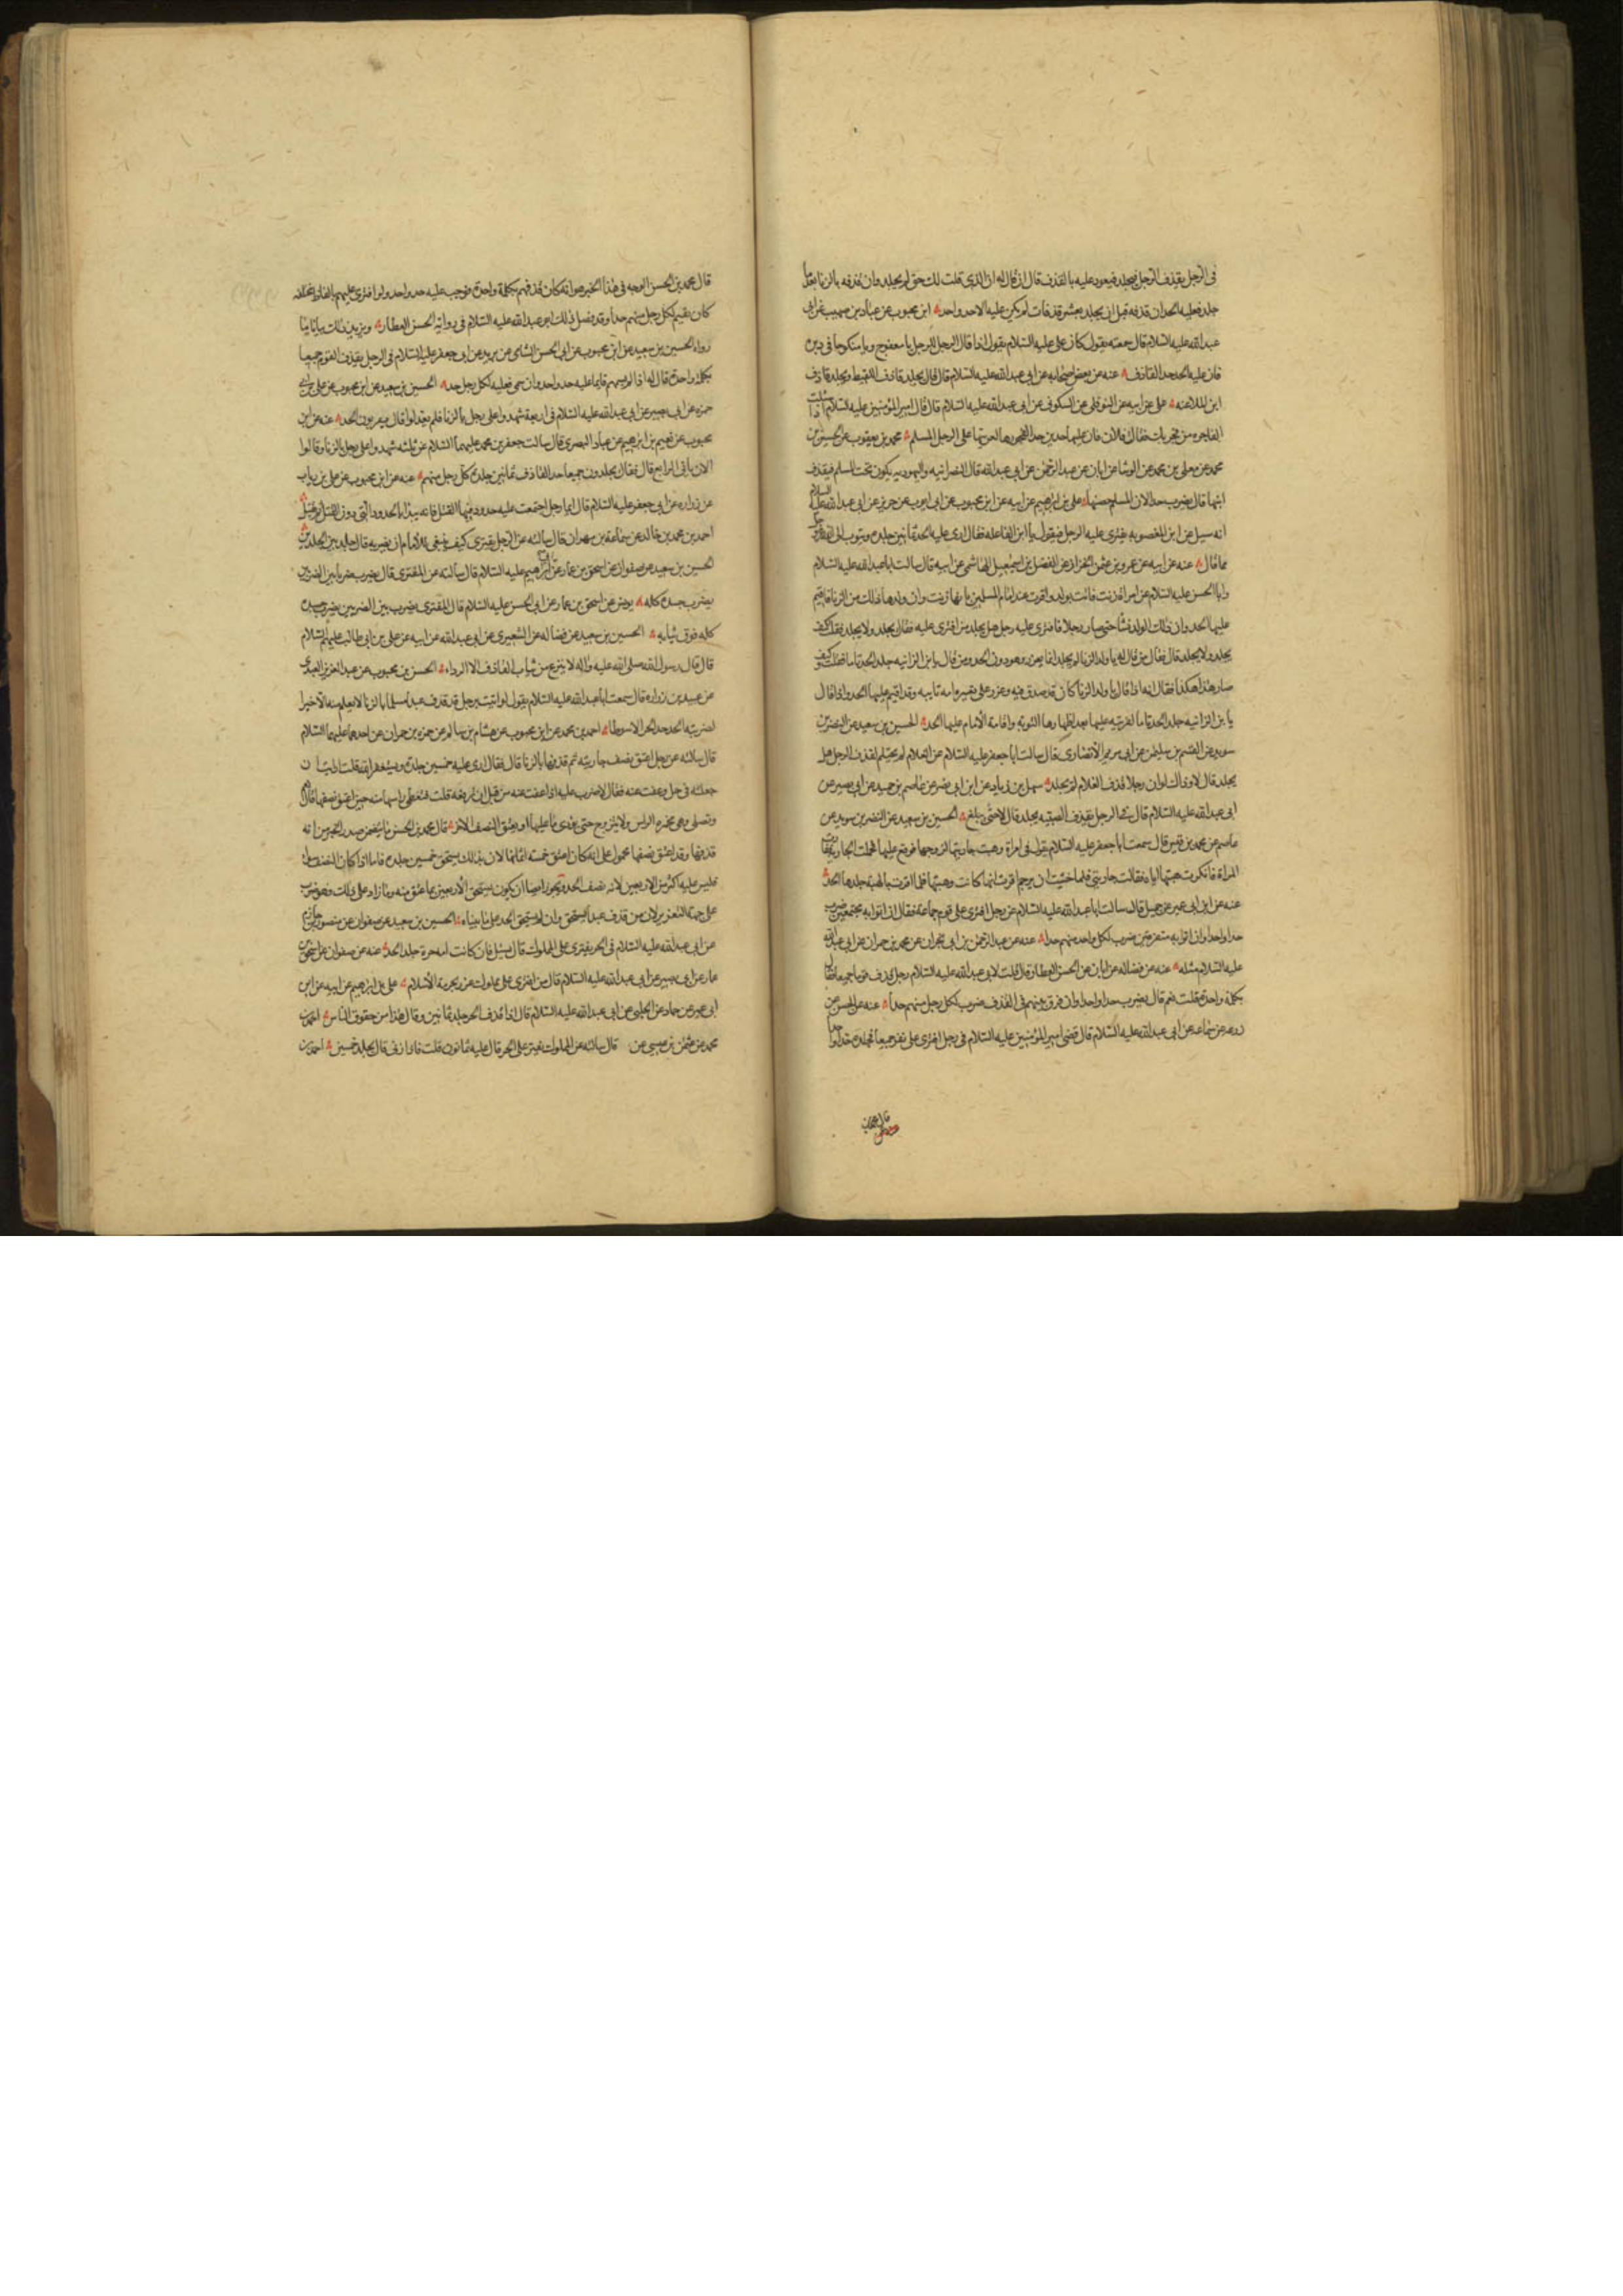 فى الرجل يقذف الرجل فيجلد فيعود عليه بالقذف قال ان قال له ان الذى قلت لك حق لم يجلد وان قذفه بالزنا بعد ما
جلد فعليه الحد وان قذفه قبل ان يجلد بعشر قذفات لم يكن عليه الا حد واحد ابن محبوب عن عباد بن صهيب عن ابى
عبد الله عليه السلام قال سمعته يقول كان على عليه السلام يقول اذا قال الرجل للرجل يا معفوج ويا منكوحا فى دبره
فان عليه الحد حد القاذف عنه عن بعض اصحابه عن ابى عبد الله عليه السلام قال قال يجلد قاذف اللقيط ويجلد قاذف
ابن الملاعنه على عن ابيه عن النوفلى عن السكونى عن ابى عبد الله عليه السلام قال قال امير المؤمنين عليه السلام اذا سئلت
الفاجره من فجر بك فقالت فلان فان عليها حدين حد لفجورها لفريتها على الرجل المسلم محمد بن يعقوب عن الحسين بن
محمد عن معلى بن محمد عن الوشا عن ابان عن عبد الرحمن عن ابى عبد الله قال النصرانيه واليهوديه يكون تحت المسلم فيقذف
ابنها قال يضرب حدا لان المسلم حصنها على بن ابرهيم عن ابيه عن ابن محبوب عن ابى ايوب عن حريز عن ابى عبد الله عليه السلام
انه سئل عن ابن المغصوبه يفترى عليه الرجل فيقول يا ابن الفاعله فقال ارى عليه الحد ثمانين جلده ويتوب الى الله عز وجل
مما قال عنه عن ابيه عن عمرو بن عثمن الخزاز عن الفضل بن اسمعيل الهاشمى عن ابيه قال سالت ابا عبد الله عليه السلام
وابا الحسن عليه السلام عن امراة زنت فاتت بولد واقرت عند امام المسلمين بانها زنت وان ولدها ذلك من الزنا فاقيم
عليها الحد وان ذلك الولد نشا حتى صار رجلا فافترى عليه رجل هل يجلد من افترى عليه فقال يجلد ولا يجلد فقلت كيف
يجلد ولا يجلد قال فقال من قال له يا ولد الزنا لم يجلد انما يعزر وهو دون الحد ومن قال يا بن الزانيه جلد الحد تاما فقلت كيف
صار هذا هكذا فقال انه اذا قال يا ولد الزنا كان قد صدق فيه وعزر على تعييره امه ثانيه وقد اقيم عليها الحد واذا قال
يا بن الزانيه جلد الحد تاما لفريته عليها بعد اظهارها التوبه واقامه الامام عليها الحد الحسين بن سعيد عن النضر بن
سويد عن القسم بن سليمن عن ابى مريم الانصارى قال سالت ابا جعفر عليه السلام عن الغلام لم يحتلم يقذف الرجل هل
يجلد قال لا وذاك لو ان رجلا قذف الغلام لم يجلد سهل بن زياد عن ابن ابى نصر عن عاصم بن حميد عن ابى بصير عن
ابى عبد الله عليه السلام قال فى الرجل يقذف الصبيه يجلد قال لا حتى يبلغ الحسين بن سعيد عن النضر بن سويد عن
عاصم عن محمد بن قيس قال سمعت ابا جعفر عليه السلام يقول فى امراة وهبت جاريتها لزوجها فوقع عليها فحملت الجاريه
المراة فانكرت هبتها اياه فقالت جاريتى فلما خشيت ان يرجم اقرت انها كانت وهبتها فلما اقرت بالهبه جلدها الحد
عنه عن ابن ابى عمير عن جميل قال سالت ابا عبد الله عليه السلام عن رجل افترى على قوم جماعة فقال ان اتوا به مجتمعين ضرب
حدا واحدا وان اتوا به متفرقين ضرب لكل واحد منهم حدا عنه عن عبد الرحمن بن ابى نجران عن محمد بن حمران عن ابى عبد الله
عليه السلام مثله عنه عن فضاله عن ابان عن الحسن العطار قال قلت لابى عبد الله عليه السلام رجل قذف قوما جميعا فقال
بكلمة واحدة قلت نعم قال يضرب حدا واحدا وان فرق بينهم فى القذف ضرب لكل رجل منهم حدا عنه عن الحسن عن
زرعه عن سماعه عن ابى عبد الله عليه السلام قال قضى امير المؤمنين عليه السلام فى رجل افترى على نفر جميعا فجلده حدا واحدا
قال محمد بن
قال محمد بن الحسن الوجه فى هذا الخبر هو انه كان قذفهم بكلمة واحدة فوجب عليه حد واحد ولو افترى عليهم بالفاظ مختلفه
كان يقيم لكل رجل منهم حدا وقد فصل ذلك ابو عبد الله عليه السلام فى رواية الحسن العطار ويزيد ذلك بيانا ما
رواه الحسين بن سعيد عن ابن محبوب عن ابى الحسن الشامى عن بريد عن ابى جعفر عليه السلام فى الرجل يقذف القوم جميعا
بكلمة واحدة قال له اذا لم يسمهم فانما عليه حد واحد وان سمى فعليه لكل رجل حد الحسين بن سعيد عن ابن محبوب عن على بن ابى
حمزه عن ابى بصير عن ابى عبد الله عليه السلام فى اربعة شهدوا على رجل بالزنا فلم يعدلوا قال يضربون الحد عنه عن ابن
محبوب عن نعيم بن ابرهيم عن عباد البصرى قال سالت جعفر بن محمد عليهما السلام عن ثلثه شهدوا على رجل بالزنا وقالوا
الان ياتى الرابع قال فقال يجلدون جميعا حد القاذف ثمانين جلدة كل رجل منهم عنه عن ابن محبوب عن على بن رياب
عن زراره عن ابى جعفر عليه السلام قال ايما رجل اجتمعت عليه حدود فيها القتل فانه يبدا بالحدود التى دون القتل ثم يقتل
احمد بن محمد بن خالد عن سماعة بن مهران قال سالته عن الرجل يفترى كيف ينبغى للامام ان يضربه قال جلد بين الجلدين
الحسين بن سعيد عن صفوان عن اسحق بن عمار عن ابى ابرهيم عليه السلام قال سالته عن المفترى قال يضرب ضربا بين الضربين
يضرب جسده كله يونس عن اسحق بن عمار عن ابى الحسن عليه السلام قال المفترى يضرب بين الضربين يضرب جسده
كله فوق ثيابه الحسين بن سعيد عن فضاله عن الشعيرى عن ابى عبد الله عن ابيه عن على بن ابى طالب عليهم السلام
قال قال رسول الله صلى الله عليه واله لا ينزع من ثياب القاذف الا الرداء الحسن بن محبوب عن عبد العزيز العبدى
عن عبيد بن زراره قال سمعت ابا عبد الله عليه السلام يقول لو اتيت برجل قد قذف عبدا مسلما بالزنا لا نعلم منه الا خيرا
لضربته الحد حد الحر الا سوطا احمد بن محمد عن ابن محبوب عن هشام بن سالم عن حمزه بن حمران عن احدهما عليهما السلام
قال سالته عن رجل اعتق نصف جاريته ثم قذفها بالزنا قال فقال ارى عليه خمسين جلده ويستغفر الله قلت ارايت ان
جعلته فى حل وعفت عنه فقال لا ضرب عليه اذا عفت عنه من قبل ان ترفعه قلت فتغطى راسها منه حين اعتق نصفها قال نعم
وتصلى وهى مخمره الراس ولا يتزوج حتى تؤدى ما عليها او يعتق النصف الاخر قال محمد بن الحسن ما يتضمن صدر الخبر من انه
قذفها وقد اعتق نصفها محمول على انه كان اعتق خمسة اثمانها لان بذلك يستحق خمسين جلده فاما اذا كان النصف
فليس عليه اكثر من الاربعين لانه نصف الحد ويجوز ايضا ان يكون يستحق الاربعين بما عتق منه وما زاد على ذلك وهو عشر
على جهة التعزير لان من قذف عبدا يستحق وان لم يستحق الحد على ما بيناه الحسين بن سعيد عن صفوان عن منصور بن حازم
عن ابى عبد الله عليه السلام فى الحر يفترى على المملوك قال يسئل فان كانت امه حرة جلد الحد عنه عن صفوان عن اسحق بن
عمار عن ابى بصير عن ابى عبد الله عليه السلام قال من افترى على مملوك عزر بحرمة الاسلام على بن ابرهيم عن ابيه عن ابن
ابى عمير عن حماد عن الحلبى عن ابى عبد الله عليه السلام قال اذا قذف الحر جلد ثمانين وقال هذا من حقوق الناس احمد بن
محمد عن عثمن بن عيسى عن قال سالته عن المملوك يفترى على الحر قال عليه ثمانون قلت فاذا زنى قال يجلد خمسين احمد بن